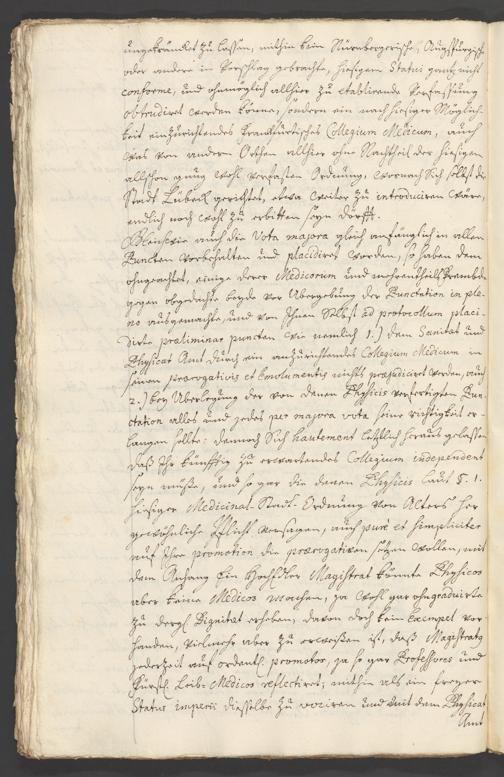 ungekräncket zu lassen, mithin kein Nürnbergisches, Augspurgisches
oder andere in Vorschlag gebrachte, hiesigem Statui gantz nicht
conforme, und ohnmöglich allhier zu etablirende Verfassung
obtrudiret werden könne, sondern ein nach hiesiger Möglich-
keit einzurichtendes Franckfurtisches Collegium Medicum, auch
was von andern Orthen allhier ohne Nachtheil der hiesigen
allschon genug wohl verfasten Ordnung, wornach Sich selbst die
Stadt Lübeck gerichtet, etwa weiter zu introduciren wäre,
endlich noch wohl zu erbitten seyn dörffte.
Gleichwie auch die Vota majora gleich anfänglich in allen
Puncten vorbehalten und placidiret worden, so haben dem
ohngeachtet, einige derer Medicorum und
gegen obgedachte beyde vor Ubergebung der Punctation in ple-
no ausgemachte, und von Ihnen Selbst ad protocollum placi-
dirte præliminar puncten wie nemlich 1.) dem Sanitat und
Physicat Amt durch ein anzurichtendes Collegium Medicum in
seinen prærogativis et Emolumentis nichts præjudiciret werden, auch
2.) bey Uberlegung der von denen Physicis verfertigten Pun-
ctation alles und jedes per majora vota seine richtigkeit er-
langen sollte: dennoch Sich hautement letztlich heraus gelassen
daß Ihr künfftig zu erwartendes Collegium independent
seyn müste, und so gar die denen Physicis laut §. 1.
hiesiger Medicinal-Stadt-Ordnung von Alters her
gewöhnliche Pflicht versagen, auch pure et simpliciter
auf Ihre promotion die prærogativen setzen wollen, mit
dem Anhang Ein HochEdler Magistrat könnte Physicos
aber keine Medicos machen, ja wohl gar ohngraduirte
zu dergl. Dignitæt erheben, davon doch kein Exempel vor-
handen, vielmehr aber zu erweißen ist, daß Magistratus
jederzeit auf ordentl. promotos, ja so gar Professores und
Fürstl. Leib-Medicos reflectiret; mithin als ein freyer
Status imperii dieselbe zu vociren und mit dem Physicat
Amt